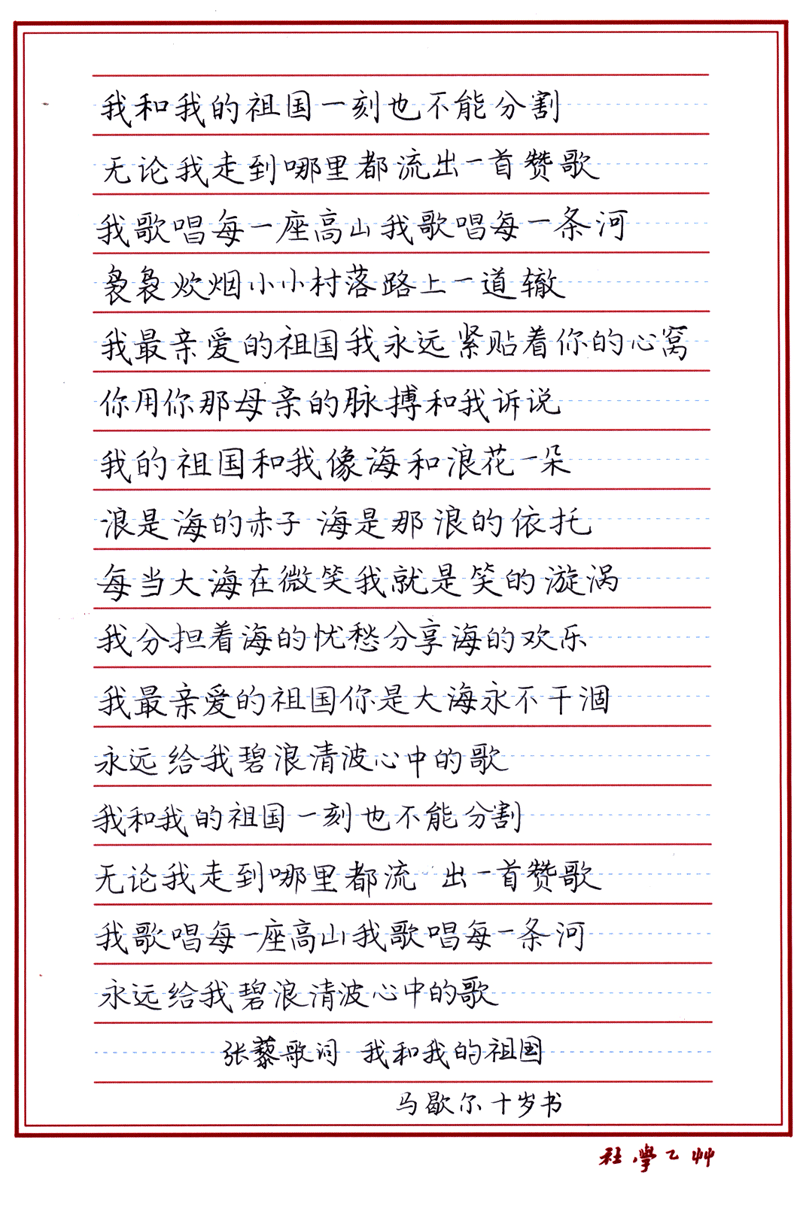 我和我的祖国一刻也不能分割
无论我走到哪里都流出一首赞歌
我歌唱每一座高山我歌唱每一条河
袅袅炊烟小小村落路上一道辙
我最亲爱的祖国我永远紧贴着你的心窝
你用你那母亲的脉搏和我诉说
我的祖国和我像海和浪花一朵
浪是海的赤子 海是那浪的依托
每当大海在微笑我就是笑的漩涡
我分担着海的忧愁分享海的欢乐
我最亲爱的祖国你是大海永不干涸
永远给我碧浪清波心中的歌
我和我的祖国一刻也不能分割
无论我走到哪里都流 出一首赞歌
我歌唱每一座高山我歌唱每一条河
永远给我碧浪清波心中的歌
张藜歌词 我和我的祖国
马歇尔十岁书